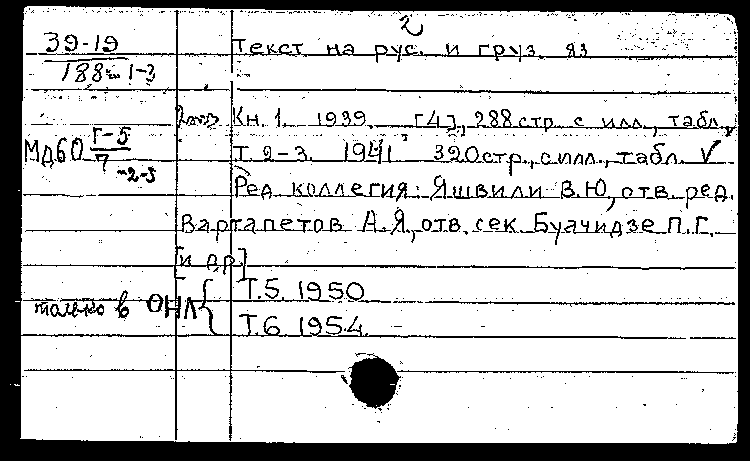 2
39-19
188 1-3
Текст на рус. и груз. яз
Кн. 1. 1939. [4], 288 стр. с илл., табл.
МдбО Г-5
7 -2-3
Т. 2-3. 1941 320 стр., с илл., табл. V
Ред. коллегия: Яшвили В.Ю, отв. ред.
Вартапетов А.Я, отв. сек. Буачидзе П.Г.
[и др]
только в ОНЛ { Т.5. 1950
Т.6 1954.